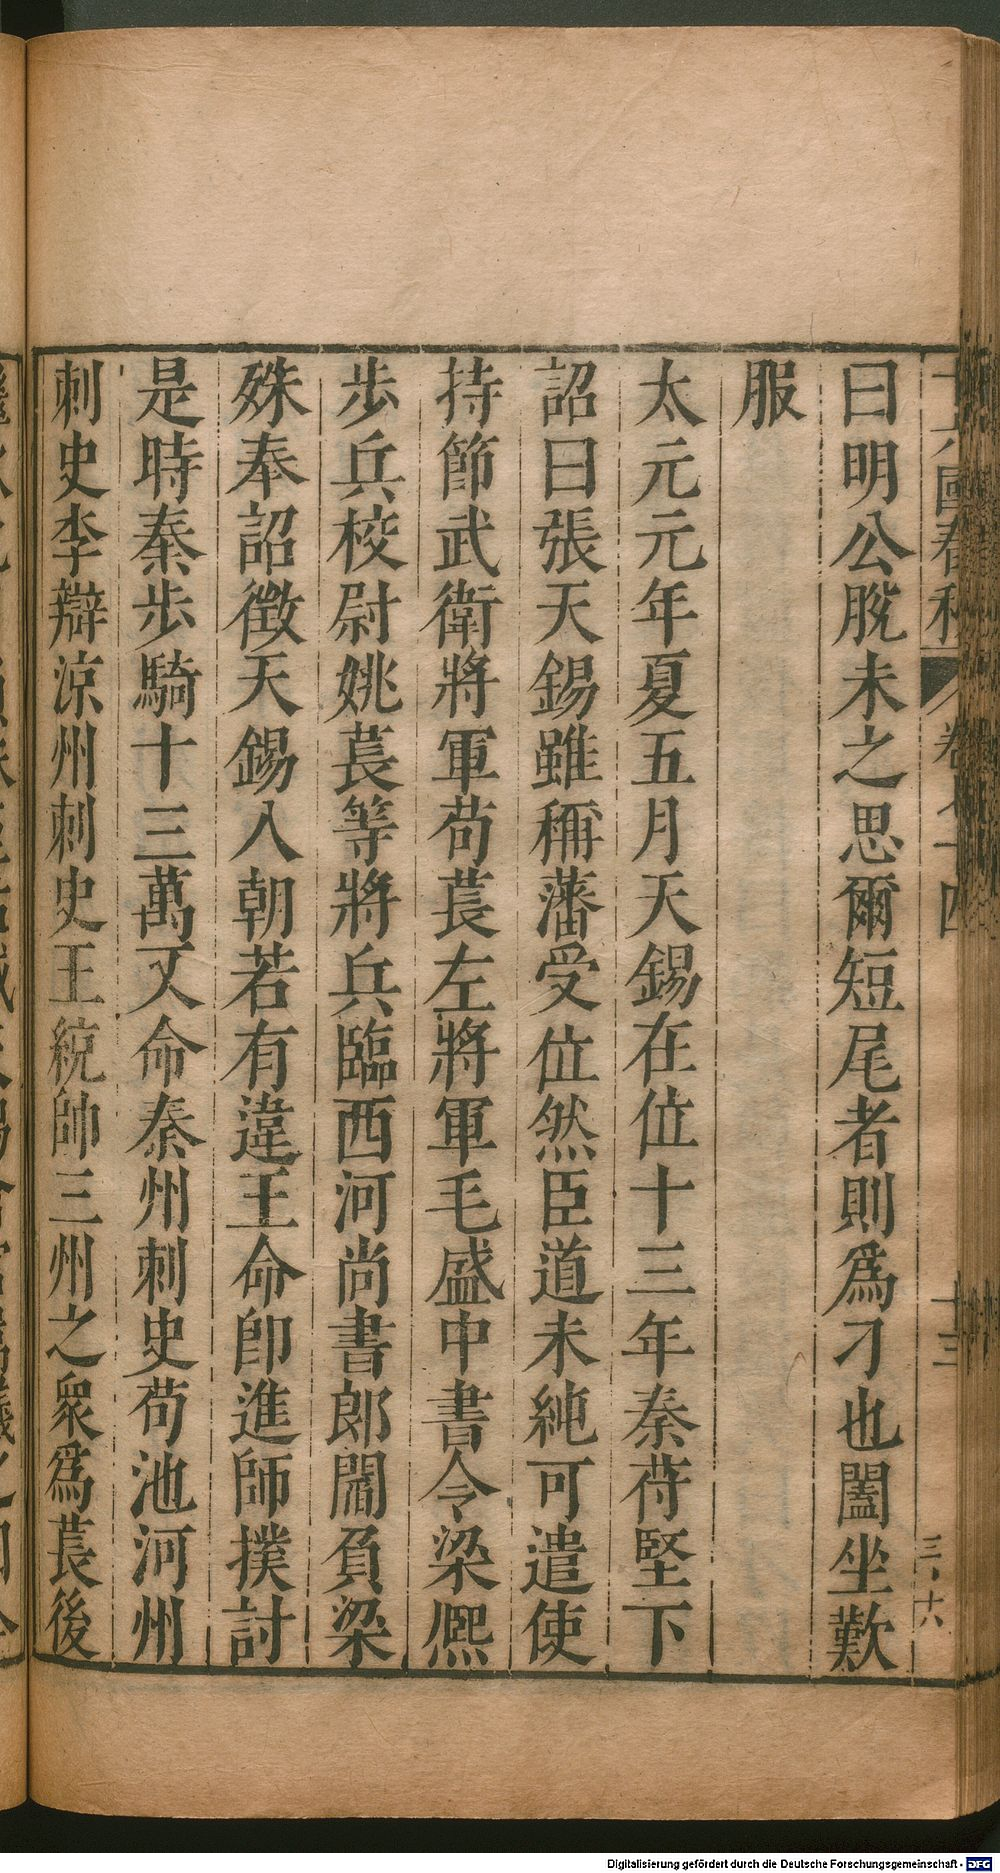 十六國春秋 卷七十四 十三 三十六
曰明公脫未之思爾短尾者則爲刁也闔坐歎
服
太元元年夏五月天錫在位十三年秦苻堅下
詔曰張天錫雖稱藩受位然臣道未純可遣使
持節武衛將軍苟萇左將軍毛盛中書令梁熙
步兵校尉姚萇等將兵臨西河尚書郎閻負梁
殊奉詔徵天錫入朝若有違王命卽進師撲討
是時秦步騎十三萬又命秦州刺史苟池河州
刺史李辯涼州刺史王統帥三州之衆爲萇後
Digitalisierung gefördert durch die Deutsche Forschungsgemeinschaft - DFG